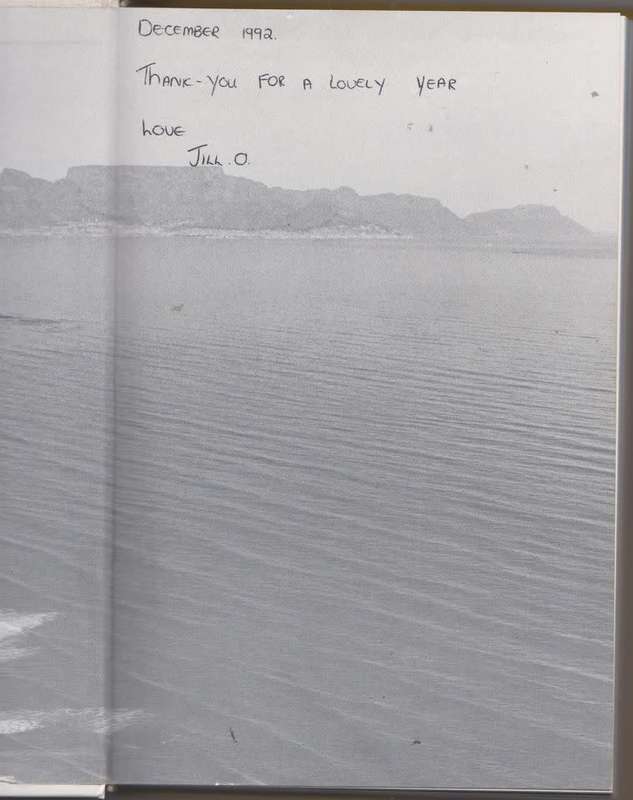 DECEMBER 1992.
THANK-YOU FOR A LOVELY YEAR
LOVE
JILL.O.